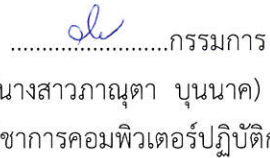 ........................กรรมการ
นางสาวภาณุตา บุนนาค)
วิชาการคอมพิวเตอร์ปฏิบัติก